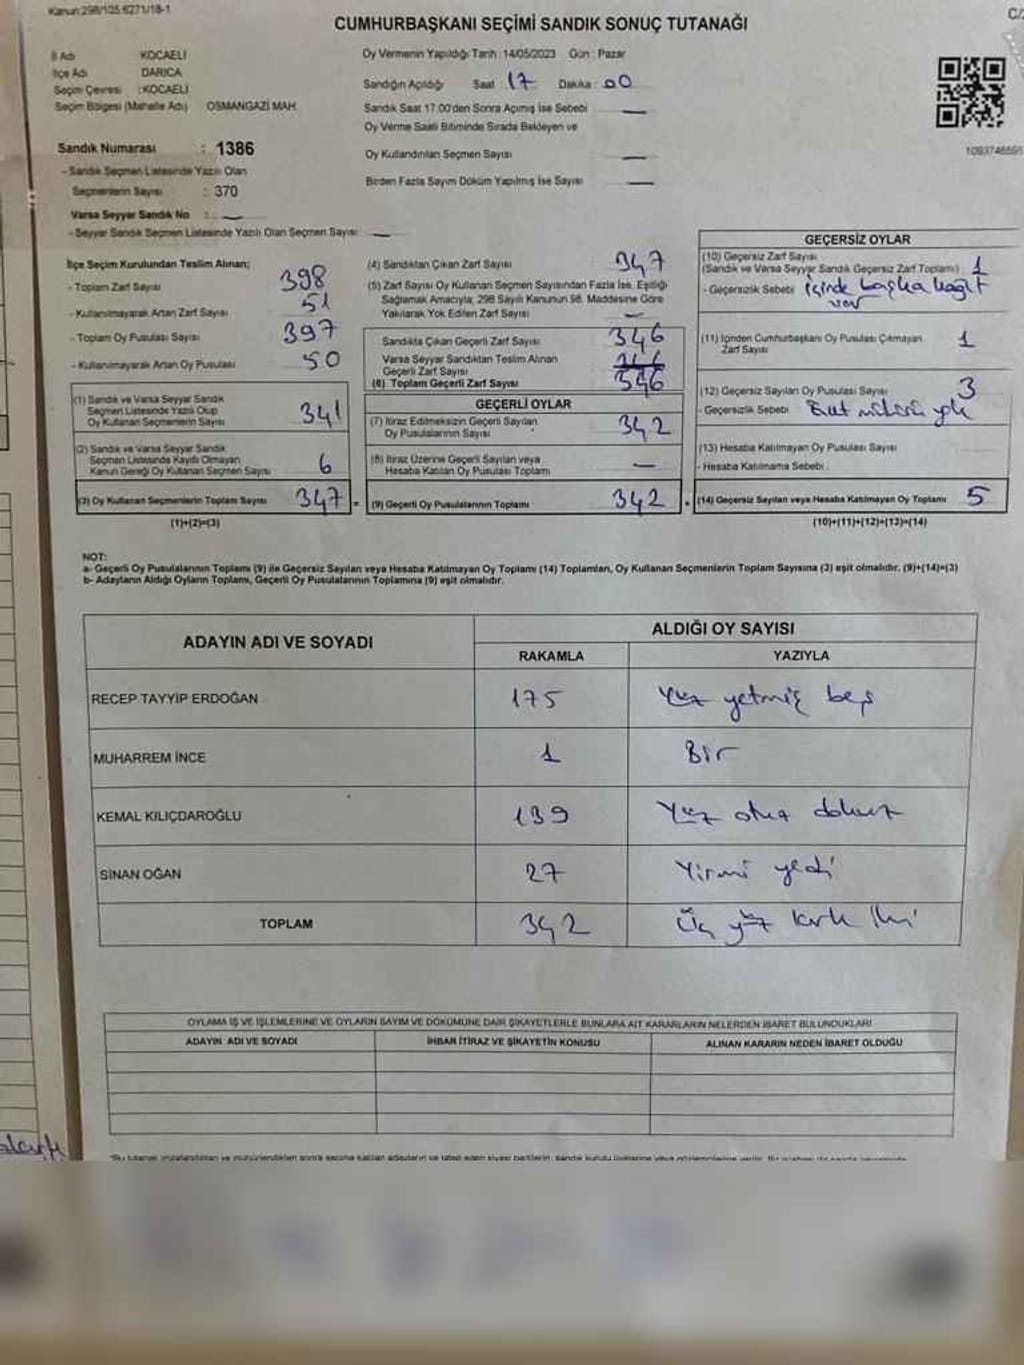 Kanun:298/105.6271/18-1
C/
CUMHURBAŞKANI SEÇİMİ SANDIK SONUÇ TUTANAĞI
İl Adı KOCAELİ
İlçe Adı DARICA
Seçim Çevresi : KOCAELİ
Seçim Bölgesi (Mahalle Adı) OSMANGAZİ MAH
Sandık Numarası : 1386
- Sandık Seçmen Listesinde Yazılı Olan
Seçmenlerin Sayısı : 370
Varsa Seyyar Sandık No : —
- Seyyar Sandık Seçmen Listesinde Yazılı Olan Seçmen Sayısı —
Oy Vermenin Yapıldığı Tarih : 14/05/2023 Gün : Pazar
Sandığın Açıldığı Saat 17 Dakika : 00
Sandık Saat 17.00'den Sonra Açımış İse Sebebi —
Oy Verme Saati Bitiminde Sırada Bekleyen ve
Oy Kullandırılan Seçmen Sayısı —
Birden Fazla Sayım Döküm Yapılmış İse Sayısı —
İlçe Seçim Kurulundan Teslim Alınan;
- Toplam Zarf Sayısı 398
- Kullanılmayarak Artan Zarf Sayısı 51
- Toplam Oy Pusulası Sayısı 397
- Kullanılmayarak Artan Oy Pusulası 50
(1) Sandık ve Varsa Seyyar Sandık
Seçmen Listesinde Yazılı Olup
Oy Kullanan Seçmenlerin Sayısı 341
(2) Sandık ve Varsa Seyyar Sandık
Seçmen Listesinde Kayıtlı Olmayan
Kanun Gereği Oy Kullanan Seçmen Sayısı 6
(3) Oy Kullanan Seçmenlerin Toplam Sayısı 347 =
(1)+(2)=(3)
(4) Sandıktan Çıkan Zarf Sayısı 347
(5) Zarf Sayısı Oy Kullanan Seçmen Sayısından Fazla İse, Eşitliği
Sağlamak Amacıyla; 298 Sayılı Kanunun 98. Maddesine Göre
Yakılarak Yok Edilen Zarf Sayısı —
Sandıkta Çıkan Geçerli Zarf Sayısı 346
Varsa Seyyar Sandıktan Teslim Alınan
Geçerli Zarf Sayısı
(6) Toplam Geçerli Zarf Sayısı 346
GEÇERLİ OYLAR
(7) İtiraz Edilmeksizin Geçerli Sayılan
Oy Pusulalarının Sayısı 342
(8) İtiraz Üzerine Geçerli Sayılan veya
Hesaba Katılan Oy Pusulası Toplamı —
(9) Geçerli Oy Pusulalarının Toplamı 342 +
GEÇERSİZ OYLAR
(10) Geçersiz Zarf Sayısı
(Sandık ve Varsa Seyyar Sandık Geçersiz Zarf Toplamı) 1
- Geçersizlik Sebebi içinde başka kağıt
var
(11) İçinden Cumhurbaşkanı Oy Pusulası Çıkmayan
Zarf Sayısı 1
(12) Geçersiz Sayılan Oy Pusulası Sayısı 3
- Geçersizlik Sebebi mühürü yok
(13) Hesaba Katılmayan Oy Pusulası Sayısı
- Hesaba Katılmama Sebebi
(14) Geçersiz Sayılan veya Hesaba Katılmayan Oy Toplamı 5
(10)+(11)+(12)+(13)=(14)
NOT:
a- Geçerli Oy Pusulalarının Toplamı (9) ile Geçersiz Sayılan veya Hesaba Katılmayan Oy Toplamı (14) Toplamları, Oy Kullanan Seçmenlerin Toplam Sayısına (3) eşit olmalıdır. (9)+(14)=(3)
b- Adayların Aldığı Oyların Toplamı, Geçerli Oy Pusulalarının Toplamına (9) eşit olmalıdır.
ADAYIN ADI VE SOYADI ALDIĞI OY SAYISI
RAKAMLA YAZIYLA
RECEP TAYYİP ERDOĞAN 175 Yüz yetmiş beş
MUHARREM İNCE 1 Bir
KEMAL KILIÇDAROĞLU 139 Yüz otuz dokuz
SİNAN OĞAN 27 Yirmi yedi
TOPLAM 342 Üç yüz kırk iki
OYLAMA İŞ VE İŞLEMLERİNE VE OYLARIN SAYIM VE DÖKÜMÜNE DAİR ŞİKAYETLERLE BUNLARA AİT KARARLARIN NELERDEN İBARET BULUNDUKLARI
ADAYIN ADI VE SOYADI İHBAR İTİRAZ VE ŞİKAYETİN KONUSU ALINAN KARARIN NEDEN İBARET OLDUĞU